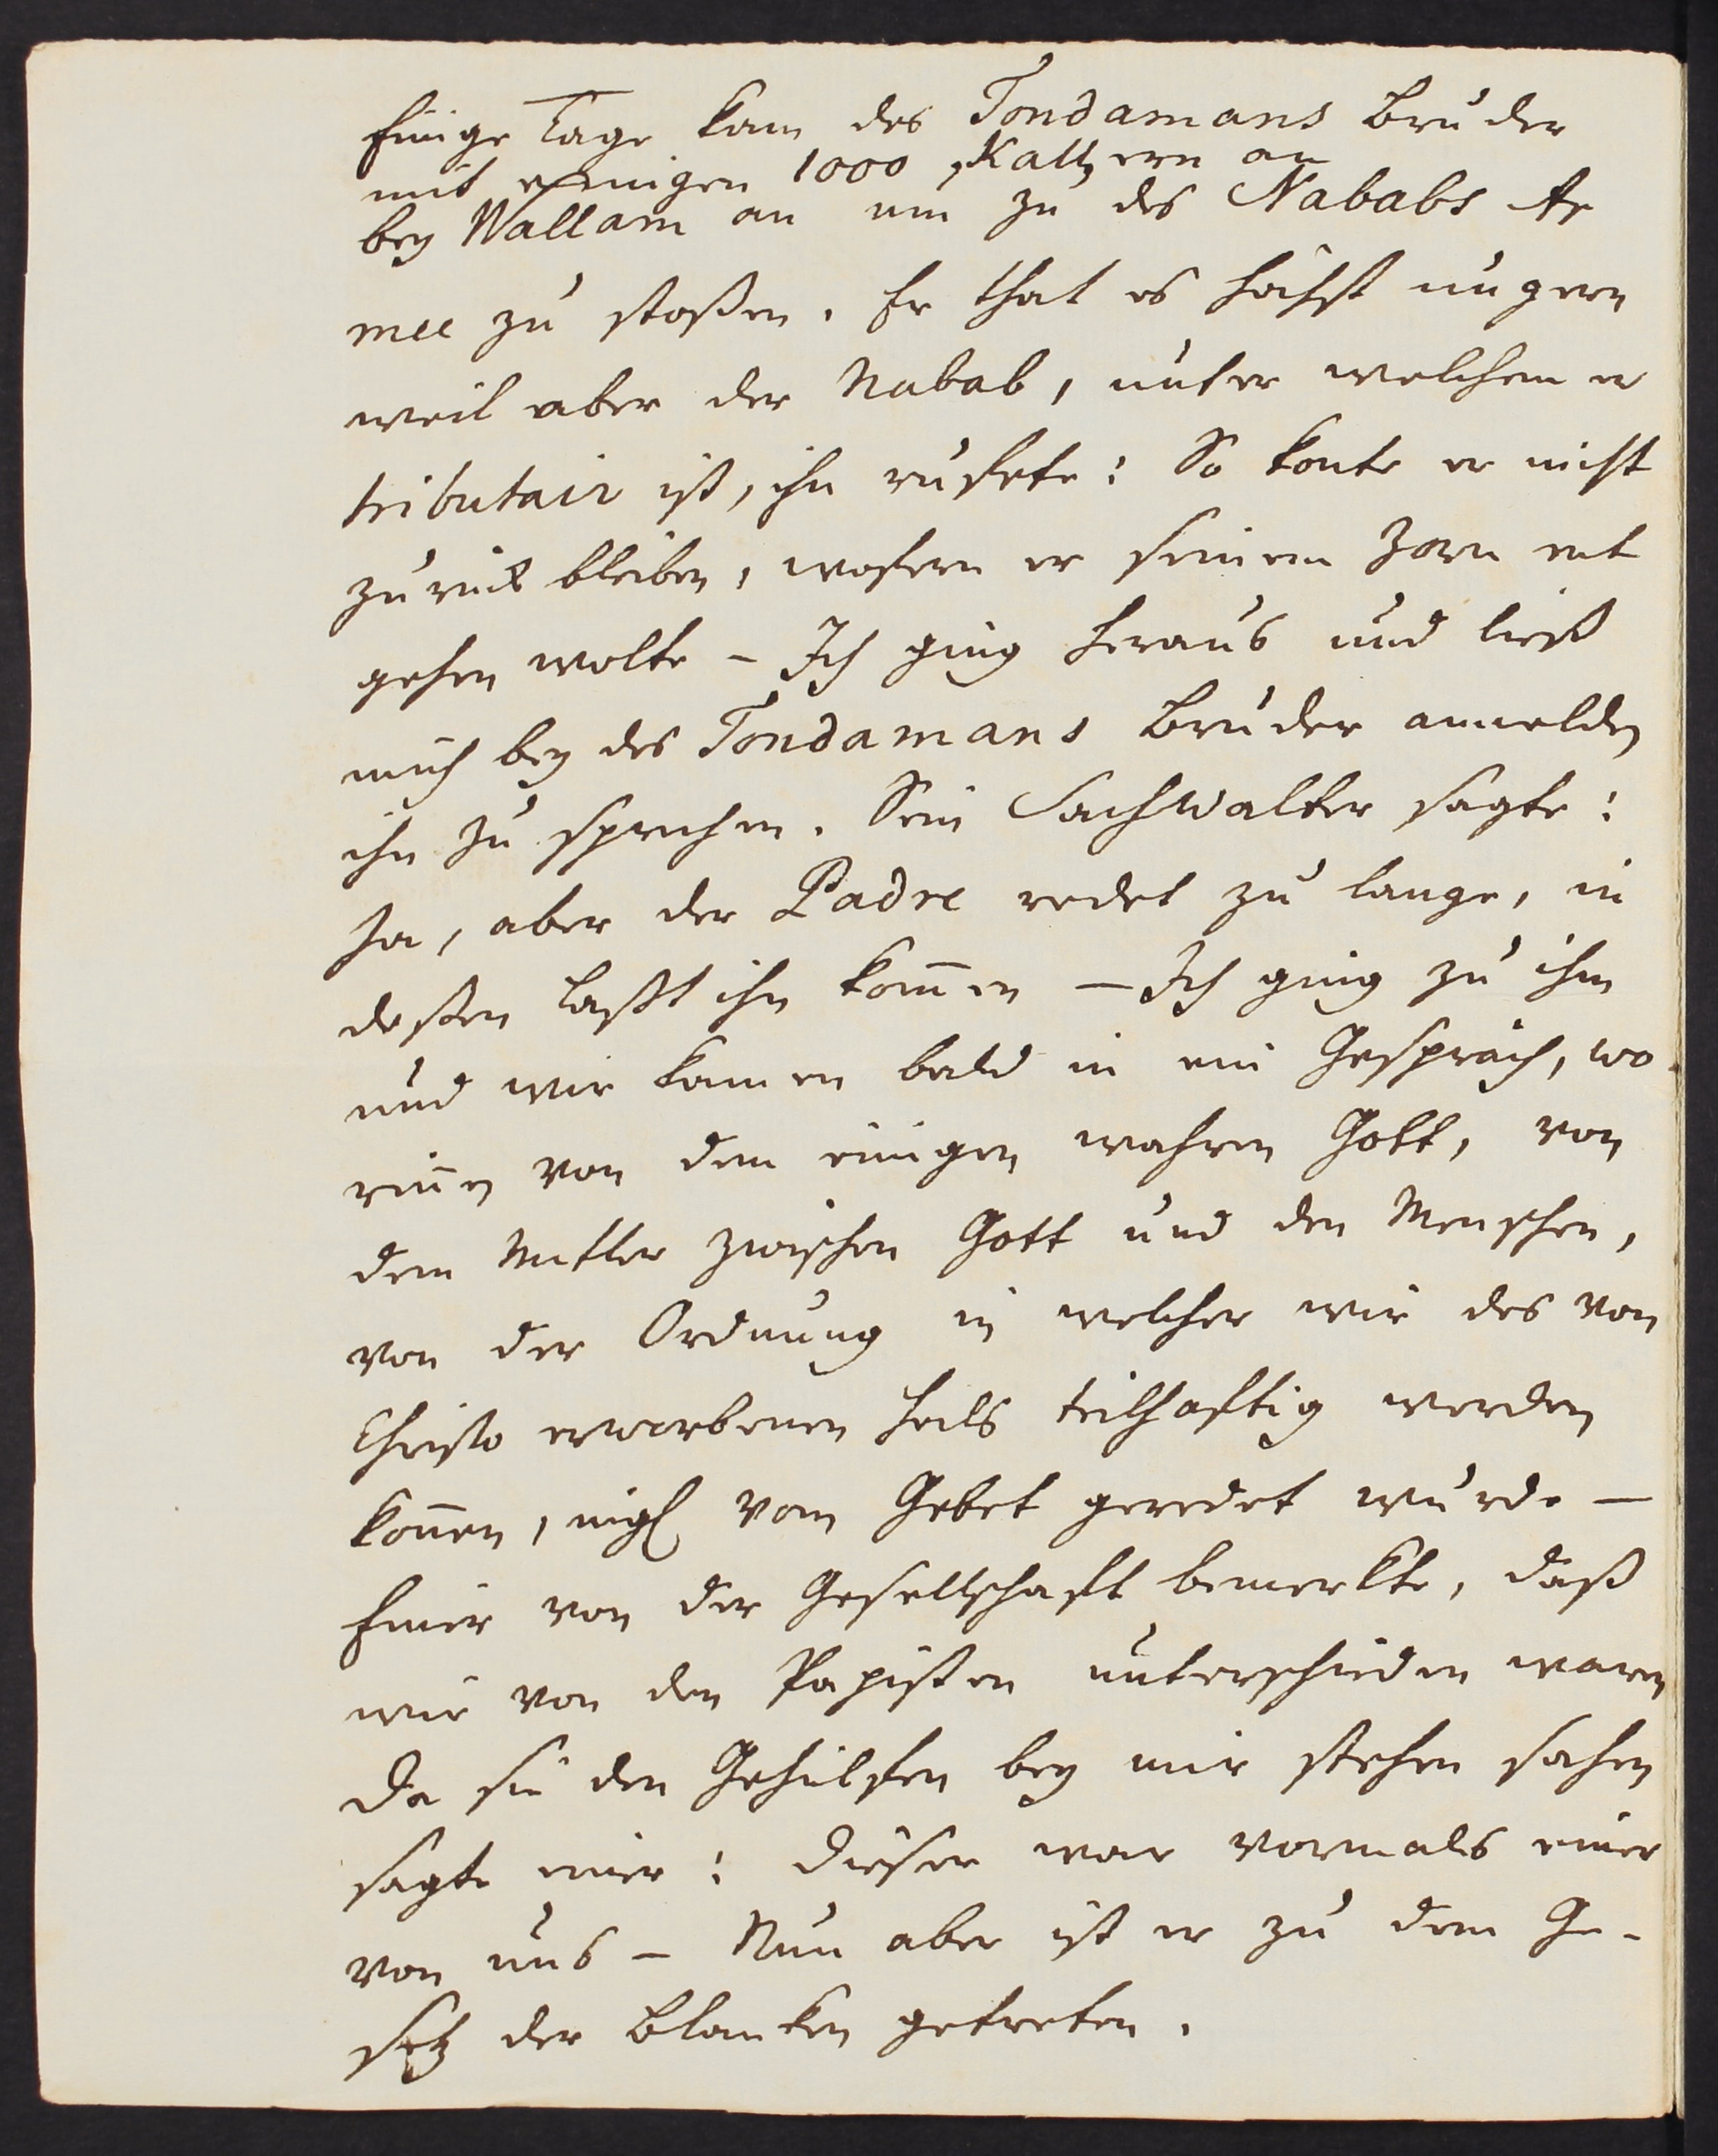 Einige Tage kam des Tondamans Bruder
mit einigen 1000 Kallern an
bey Wallam an um zu des Nababs Ar
mee zu stoßen. Er that es höchst ungern
weil aber der Nabab, unter welchem er
tributair ist, ihn rufete: So konte er nicht
zurück bleiben, wofern er seinem Zorn ent
gehen wolte – Ich ging heraus und ließ
mich bey des Tondamans Bruder anmelden
ihn zu sprechen. Sein Sachwalter sagte:
Ja, aber der Padre redet zu lange, in
deßen laßt ihn kom̄en – Ich ging zu ihm
und wir kamen bald in ein Gespräch, wo-
rin̄en von dem einigen wahren Gott, von
dem Mitler zwischen Gott und den Menschen,
von der Ordnung in welcher wir des von
Christo erworbenen Heils teilhaftig werden
kön̄en, vom Gebet geredet wurde –
Einer von der Gesellschaft bemerkte, daß
wir von den Papisten unterschieden waren
Da sie den Gehülfen bey mir stehen sahen
sagte einer: Dieser war vormals einer
von uns – Nun aber ist er zu dem Ge-
setz der Blanken getreten.